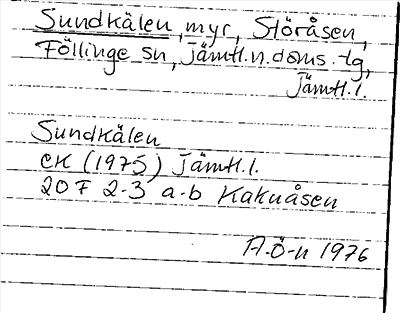 Sundkälen, myr, Störåsen,
Föllinge sn, Jämtl.n.doms.tg,
Jämtl.l.
Sundkälen
ek (1975) Jämtl.l.
20F 2-3 a-b Kakuåsen
A.Ö-n 1976